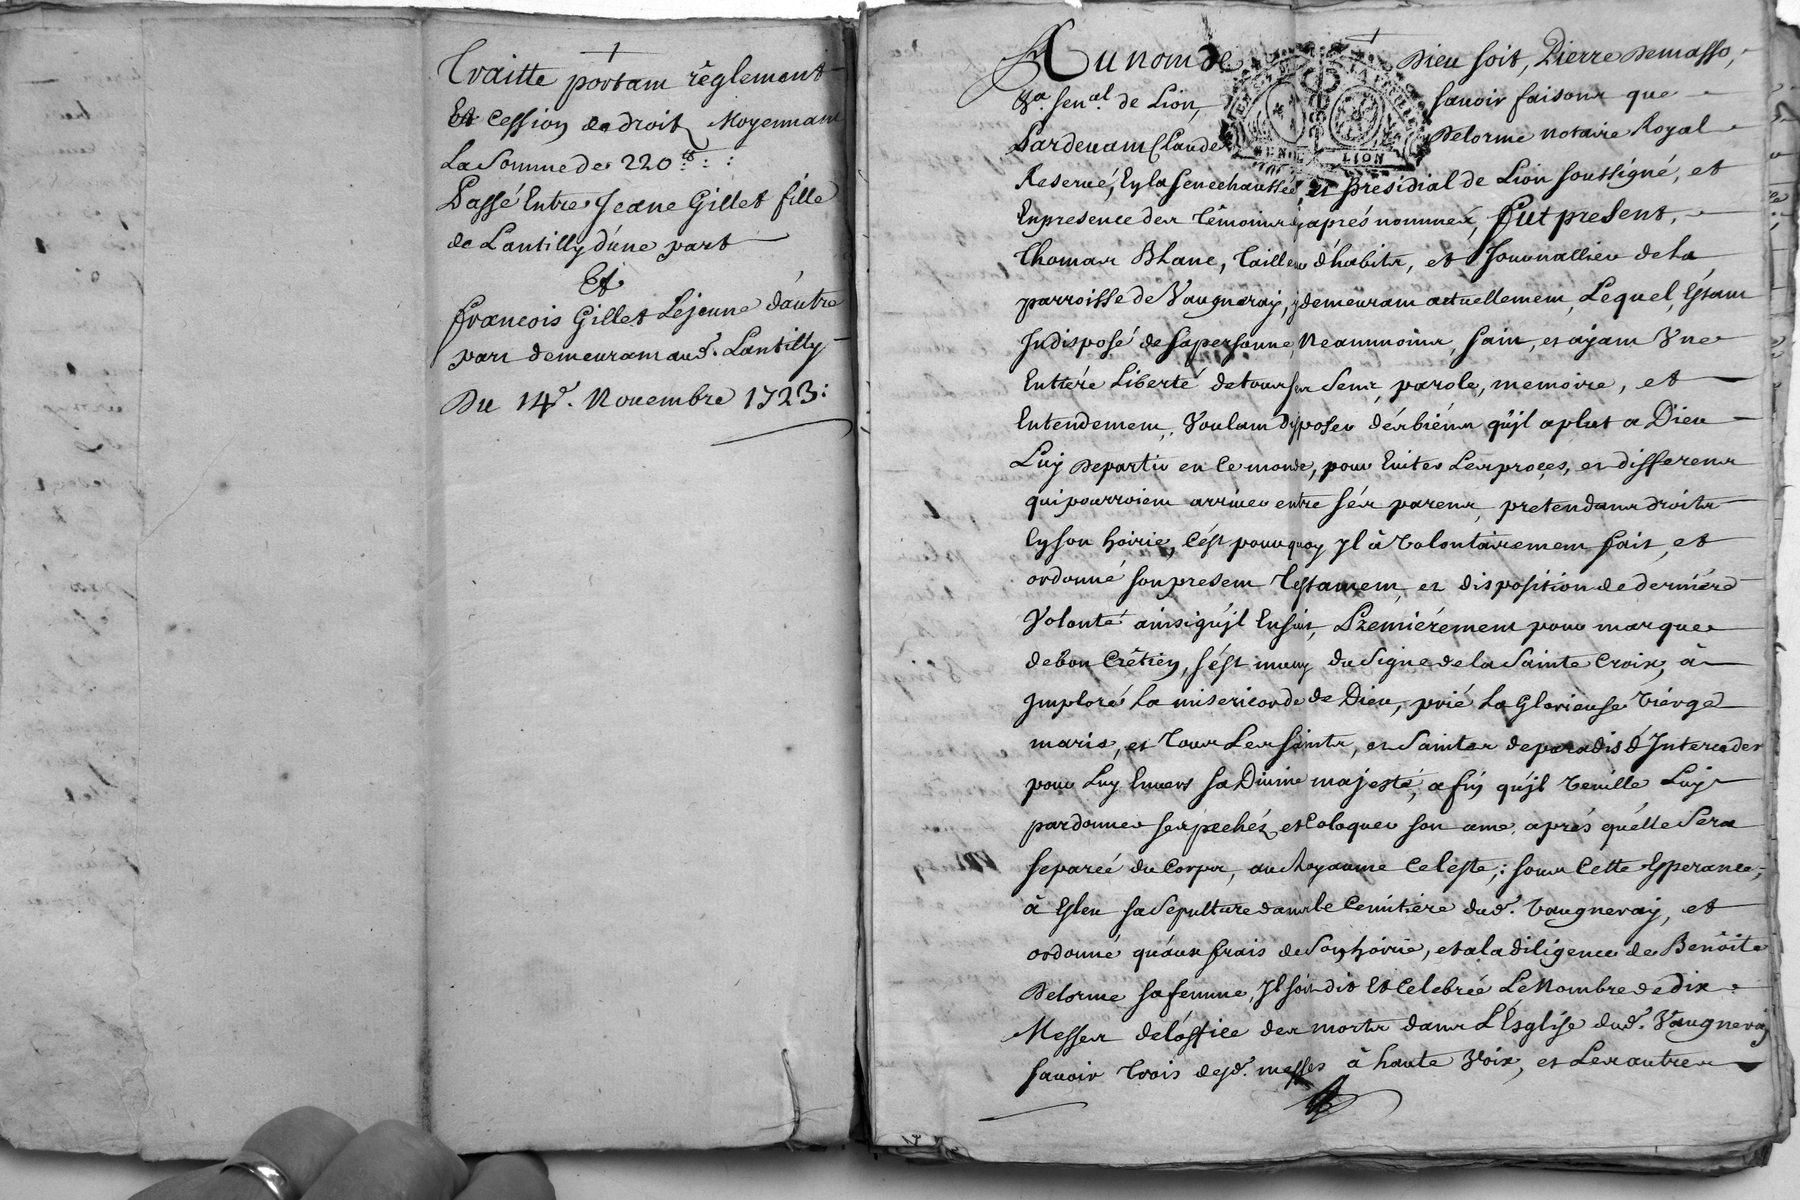 Traitte portam règlement
Et Cession de droit Moyennant
La Somme de 220 ₶ : :
Passé Entre Jeane Gillet fille
de Lantilly d'une part
Et
françois Gillet Lejeune d'autre
part demeurant aud.t Lantilly
Du 14e. Novembre 1723 :
Au nom de Dieu soit, Pierre Demasso,
Sen.al de Lion, savoir faisons que
Pardevant Claude Delorme notaire Royal
Reservé, En la Senechaussée et Presidial de Lion soussigné, et
En presence des témoins cy après nommez, fut present,
Thomas Blanc, Tailleur d'habits, et Journallier de la
parroisse de Vaugneray, y demeurant actuellement, Lequel, Estant
Indisposé de sa personne, Neanmoins, sain, et ayant Une
Entière Liberté de tous ses Sens, parole, memoire, et
Entendement, Voulant disposer des biéns qu'jl a plut a Dieu
Luy Departir en Ce monde, pour Eviter Les proçes, et differens
qui pourroient arriver entre sés parens, pretendans droits
En son hoirie, C'ést pourquoy Jl à Volontairement fait, et
ordonné son present Testament, et disposition de derniére
Volonté ainsi qu'jl Ensuit, Premiérement pour marque
de bon Crêtien, s'ést muny du Signe de la Sainte Croix, à
Jmploré La misericorde de Dieu, prié La Glorieuse Viérge
marie, et Tous Les Saints, et Saintes de paradis d'Interceder
pour Luy Envers sa Divine majesté, afin qu'jl Veuille Luy
pardonner ses pechéz, et Coloquer son ame, aprés qu'élle Sera
separeé du Corps, au Royaume Celeste ; sous Cette Esperance,
à Esleu sa Sepulture dans le Cemitière dud.t Vaugneray, et
ordonné qu'aux frais de Son hoirie, et a la diligence de Benoite
Delorme sa femme, Jl soit dit Et Celebreé Le Nombre de Dix
Messes de l'office des morts dans L'Esglise dud.t Vaugneray
savoir Trois desd. messes à haute Voix, et Les autres
GEN DE LION